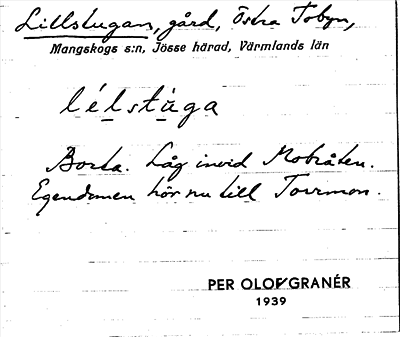 Lillstugan, gård, Östra Tobyn,
Mangskogs s:n, Jösse härad, Värmlands län
lélstùga
Borta. Låg invid Mobråten.
Egendomen hör nu till Torrmon.
PER OLOF GRANÉR
1939